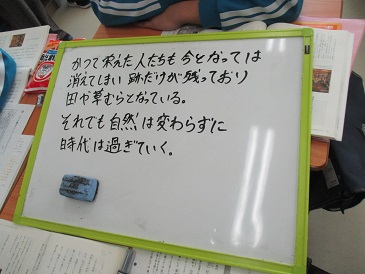 かつて栄えた人たちも今となっては
消えてしまい跡だけが残っており
田や草むらとなっている。
それでも自然は変わらずに
時代は過ぎていく。